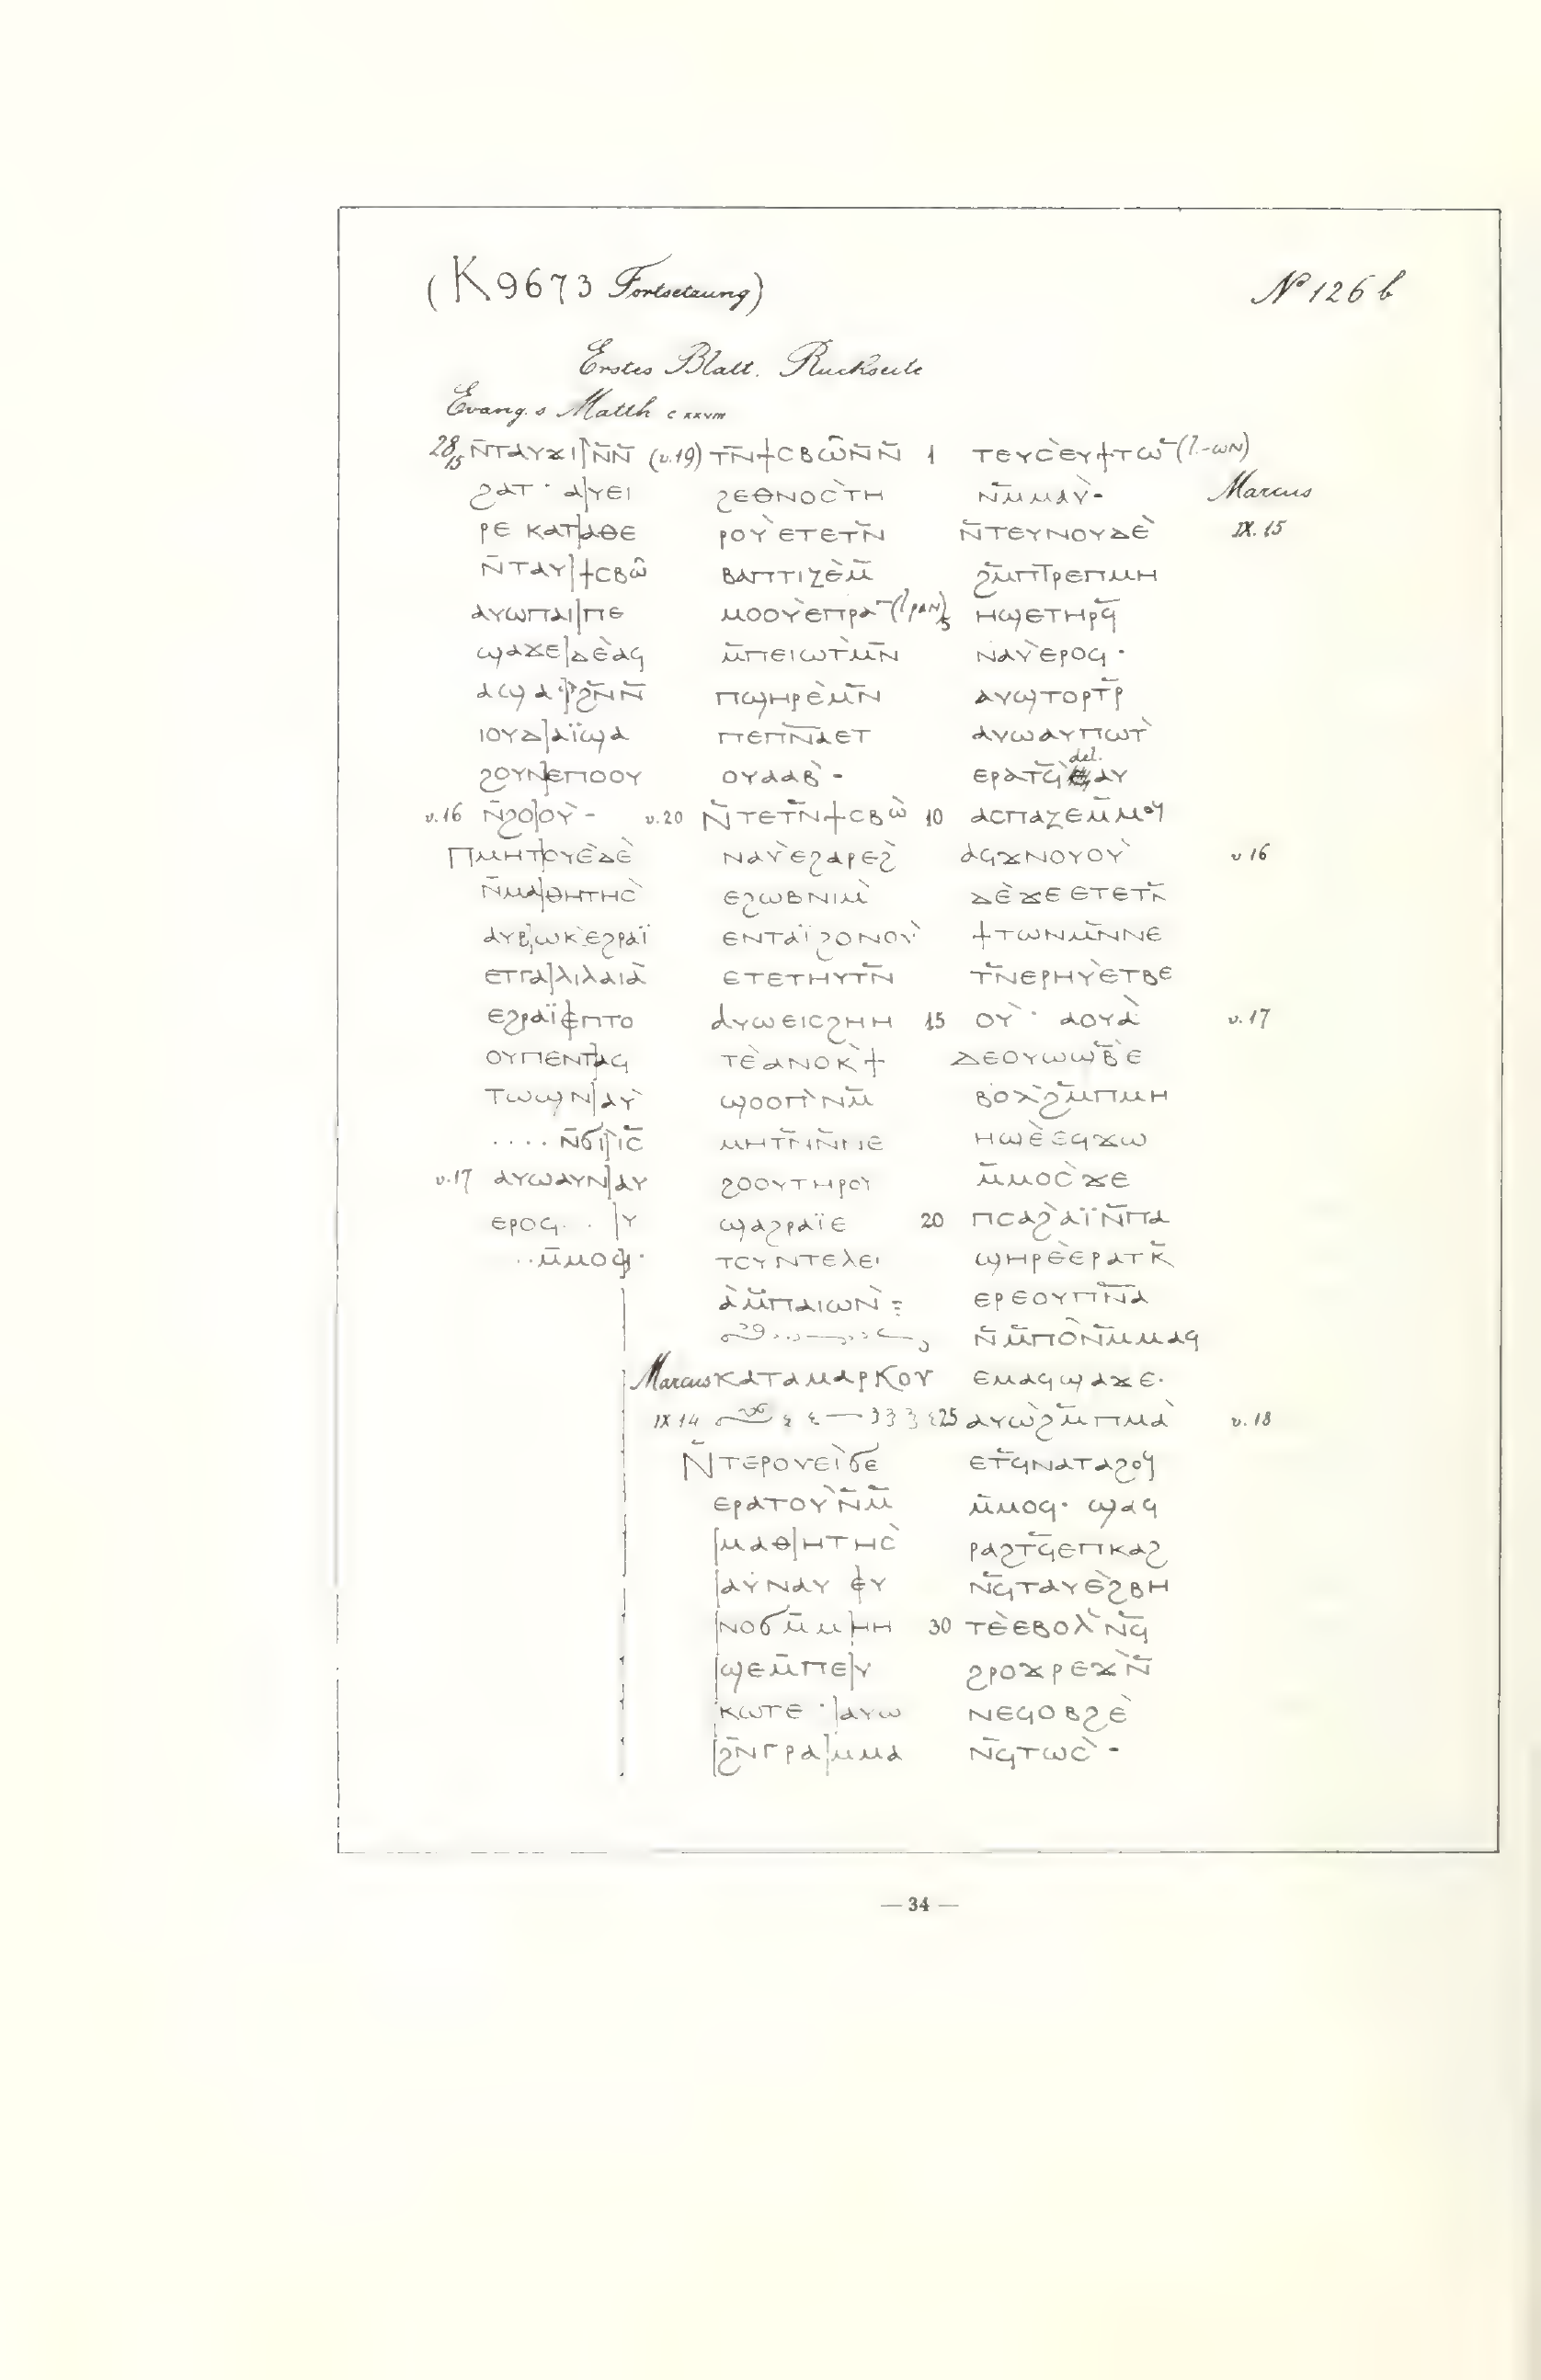 (K 9673 Fortsetzung)
No 126 b
Erstes Blatt. Ruckseite
Evang. s Matth c xxviii
28/15 ⲛ̄ⲧⲁⲩϫⲓ|ⲛ̄ⲛ̄
ϩⲁⲧ · ⲁ|ⲩⲉⲓ
ⲣⲉ ⲕⲁⲧ|ⲁⲑⲉ
ⲛ̄ⲧⲁⲩ|ϯⲥⲃⲱ̂
ⲁⲩⲱⲡⲁⲓ|ⲡⲉ
ϣⲁϫⲉ|ⲇⲉ̀ⲁϥ
ⲓⲟⲩⲇ|ⲁⲓ̈ϣⲁ
ϩⲟⲩⲛ|ⲉⲡⲟⲟⲩ
v.16 ⲛ̄ϩⲟ|ⲟⲩ̀ -
ⲡⲙⲏⲧ|ⲟⲩⲉ̀ⲇⲉ̀
ⲛ̄ⲙⲁ|ⲑⲏⲧⲏⲥ̀
ⲁⲩⲃ|ⲱⲕ̀ⲉϩⲣⲁⲓ̈
ⲉⲧⲅⲁ|ⲗⲓⲗⲁⲓⲁ̀
ⲉϩⲣⲁⲓ̈|ⲉⲡⲧⲟ
ⲟⲩⲡⲉⲛⲧ|ⲁϥ
ⲧⲱϣⲛ|ⲁⲩ̀
· · · · ⲛ̄ϭⲓ|ⲓⲥ̄
v.17 ⲁⲩⲱⲁⲩⲛ|ⲁⲩ
ⲉⲣⲟϥ · · |ⲩ
· · ⲙ̄ⲙⲟϥ|·
(v.19) ⲧⲛ̄ϯⲥⲃⲱ̂ⲛ̄ⲛ̄
ϩⲉⲑⲛⲟⲥ̀ⲧⲏ
ⲣⲟⲩ̀ⲉⲧⲉⲧⲛ̄
ⲃⲁⲡⲧⲓⲍⲉ̀ⲙ̄
ⲙⲟⲟⲩ̀ⲉⲡⲣⲁ̄ (l ⲣⲁⲛ)
ⲙ̄ⲡⲉⲓⲱⲧ̀ⲙⲛ̄
ⲡϣⲏⲣⲉ̀ⲙⲛ̄
ⲡⲉⲡⲛ̄ⲁⲉⲧ
ⲟⲩⲁⲁⲃ̀ -
v.20 ⲛ̄ⲧⲉⲧⲛ̄ϯⲥⲃⲱ̀
ⲛⲁⲩ̀ⲉϩⲁⲣⲉϩ̀
ⲉϩⲱⲃⲛⲓⲙ̀
ⲉⲛⲧⲁⲓ̈ϩⲟⲛⲟⲩ̀
ⲉⲧⲉⲧⲏⲩⲧⲛ̄
ⲁⲩⲱⲉⲓⲥϩⲏⲏ
ⲧⲉ̀ⲁⲛⲟⲕ̀ϯ
ϣⲟⲟⲡ̀ⲛⲙ̄
ⲙⲏⲧⲛ̄ⲛ̄ⲛⲉ
ϩⲟⲟⲩⲧⲏⲣⲟⲩ
ϣⲁϩⲣⲁⲓ̈ⲉ
ⲧⲥⲩⲛⲧⲉⲗⲉⲓ
ⲁ̀ⲙ̄ⲡⲁⲓⲱⲛ̀ :
Marcus ⲕⲁⲧⲁⲙⲁⲣⲕⲟⲩ
IX 14
ⲛ̄ⲧⲉⲣⲟⲩⲉⲓ̀ϭⲉ
ⲉⲣⲁⲧⲟⲩ̀ⲛ̄ⲙ̄
|ⲙⲁⲑ|ⲏⲧⲏⲥ̀
|ⲁⲩⲛⲁⲩ ⲉ|ⲩ
|ⲛⲟϭⲙ̄ⲙ|ⲏⲏ
|ϣⲉⲙ̄ⲡⲉ|ⲩ
ⲕⲱⲧⲉ ·|ⲁⲩⲱ
|ϩⲛ̄ⲅⲣⲁ|ⲙⲙⲁ
1 ⲧⲉⲩⲥ̀ⲉⲩϯⲧⲱ̄ (l. -ⲱⲛ)
ⲛ̄ⲙⲙⲁⲩ̀- Marcus
ⲛ̄ⲧⲉⲩⲛⲟⲩⲇⲉ̀ IX. 15
ϩⲙ̄ⲡⲧⲣⲉⲡⲙⲏ
5 ⲏϣⲉⲧⲏⲣϥ̄
ⲛⲁⲩ̀ⲉⲣⲟϥ ·
ⲁⲩϣⲧⲟⲣⲧⲣ̄
ⲁⲩⲱⲁⲩⲡⲱⲧ̀
del.
ⲉⲣⲁⲧϥ̄ ⲁⲩ
10 ⲁⲥⲡⲁⲍⲉⲙ̄ⲙⲟⲩ
ⲁϥϫⲛⲟⲩⲟⲩ̀ v 16
ⲇⲉ̀ϫⲉ ⲉⲧⲉⲧⲛ̄
ϯⲧⲱⲛⲙⲛ̄ⲛⲉ
ⲧⲛ̄ⲉⲣⲏⲩ̀ⲉⲧⲃⲉ
15 ⲟⲩ̀ · ⲁⲟⲩⲁ̀ v.17
ⲇⲉⲟⲩⲱϣⲃ̄̀ⲉ
ⲃⲟⲗ̀ϩⲙ̄ⲡⲙⲏ
ⲏϣⲉ̀ⲉϥϫⲱ
ⲙ̄ⲙⲟⲥ̀ϫⲉ
20 ⲡⲥⲁϩ̀ⲁⲓ̈ⲛ̄ⲡⲁ
ϣⲏⲣⲉ̀ⲉⲣⲁⲧⲕ̄
ⲉⲣⲉⲟⲩⲡⲛ̄ⲁ
ⲛ̄ⲙ̄ⲡⲟ̀ⲛ̄ⲙⲙⲁϥ
ⲉⲙⲁϥϣⲁϫⲉ·
25 ⲁⲩⲱ̀ϩⲙ̄ⲡⲙⲁ̀ v. 18
ⲉⲧϥ̄ⲛⲁⲧⲁϩⲟⲩ
ⲙ̄ⲙⲟϥ· ϣⲁϥ
ⲣⲁϩⲧϥ̄ⲉⲡⲕⲁϩ
ⲛϥ̄ⲧⲁⲩⲉ̀ϩⲃⲏ
30 ⲧⲉ̀ⲉⲃⲟⲗ̀ⲛϥ̄
ϩⲣⲟϫⲣⲉϫ̀ⲛ̄
ⲛⲉϥⲟⲃϩⲉ̀
ⲛϥ̄ⲧⲱⲥ̀ -
— 34 —